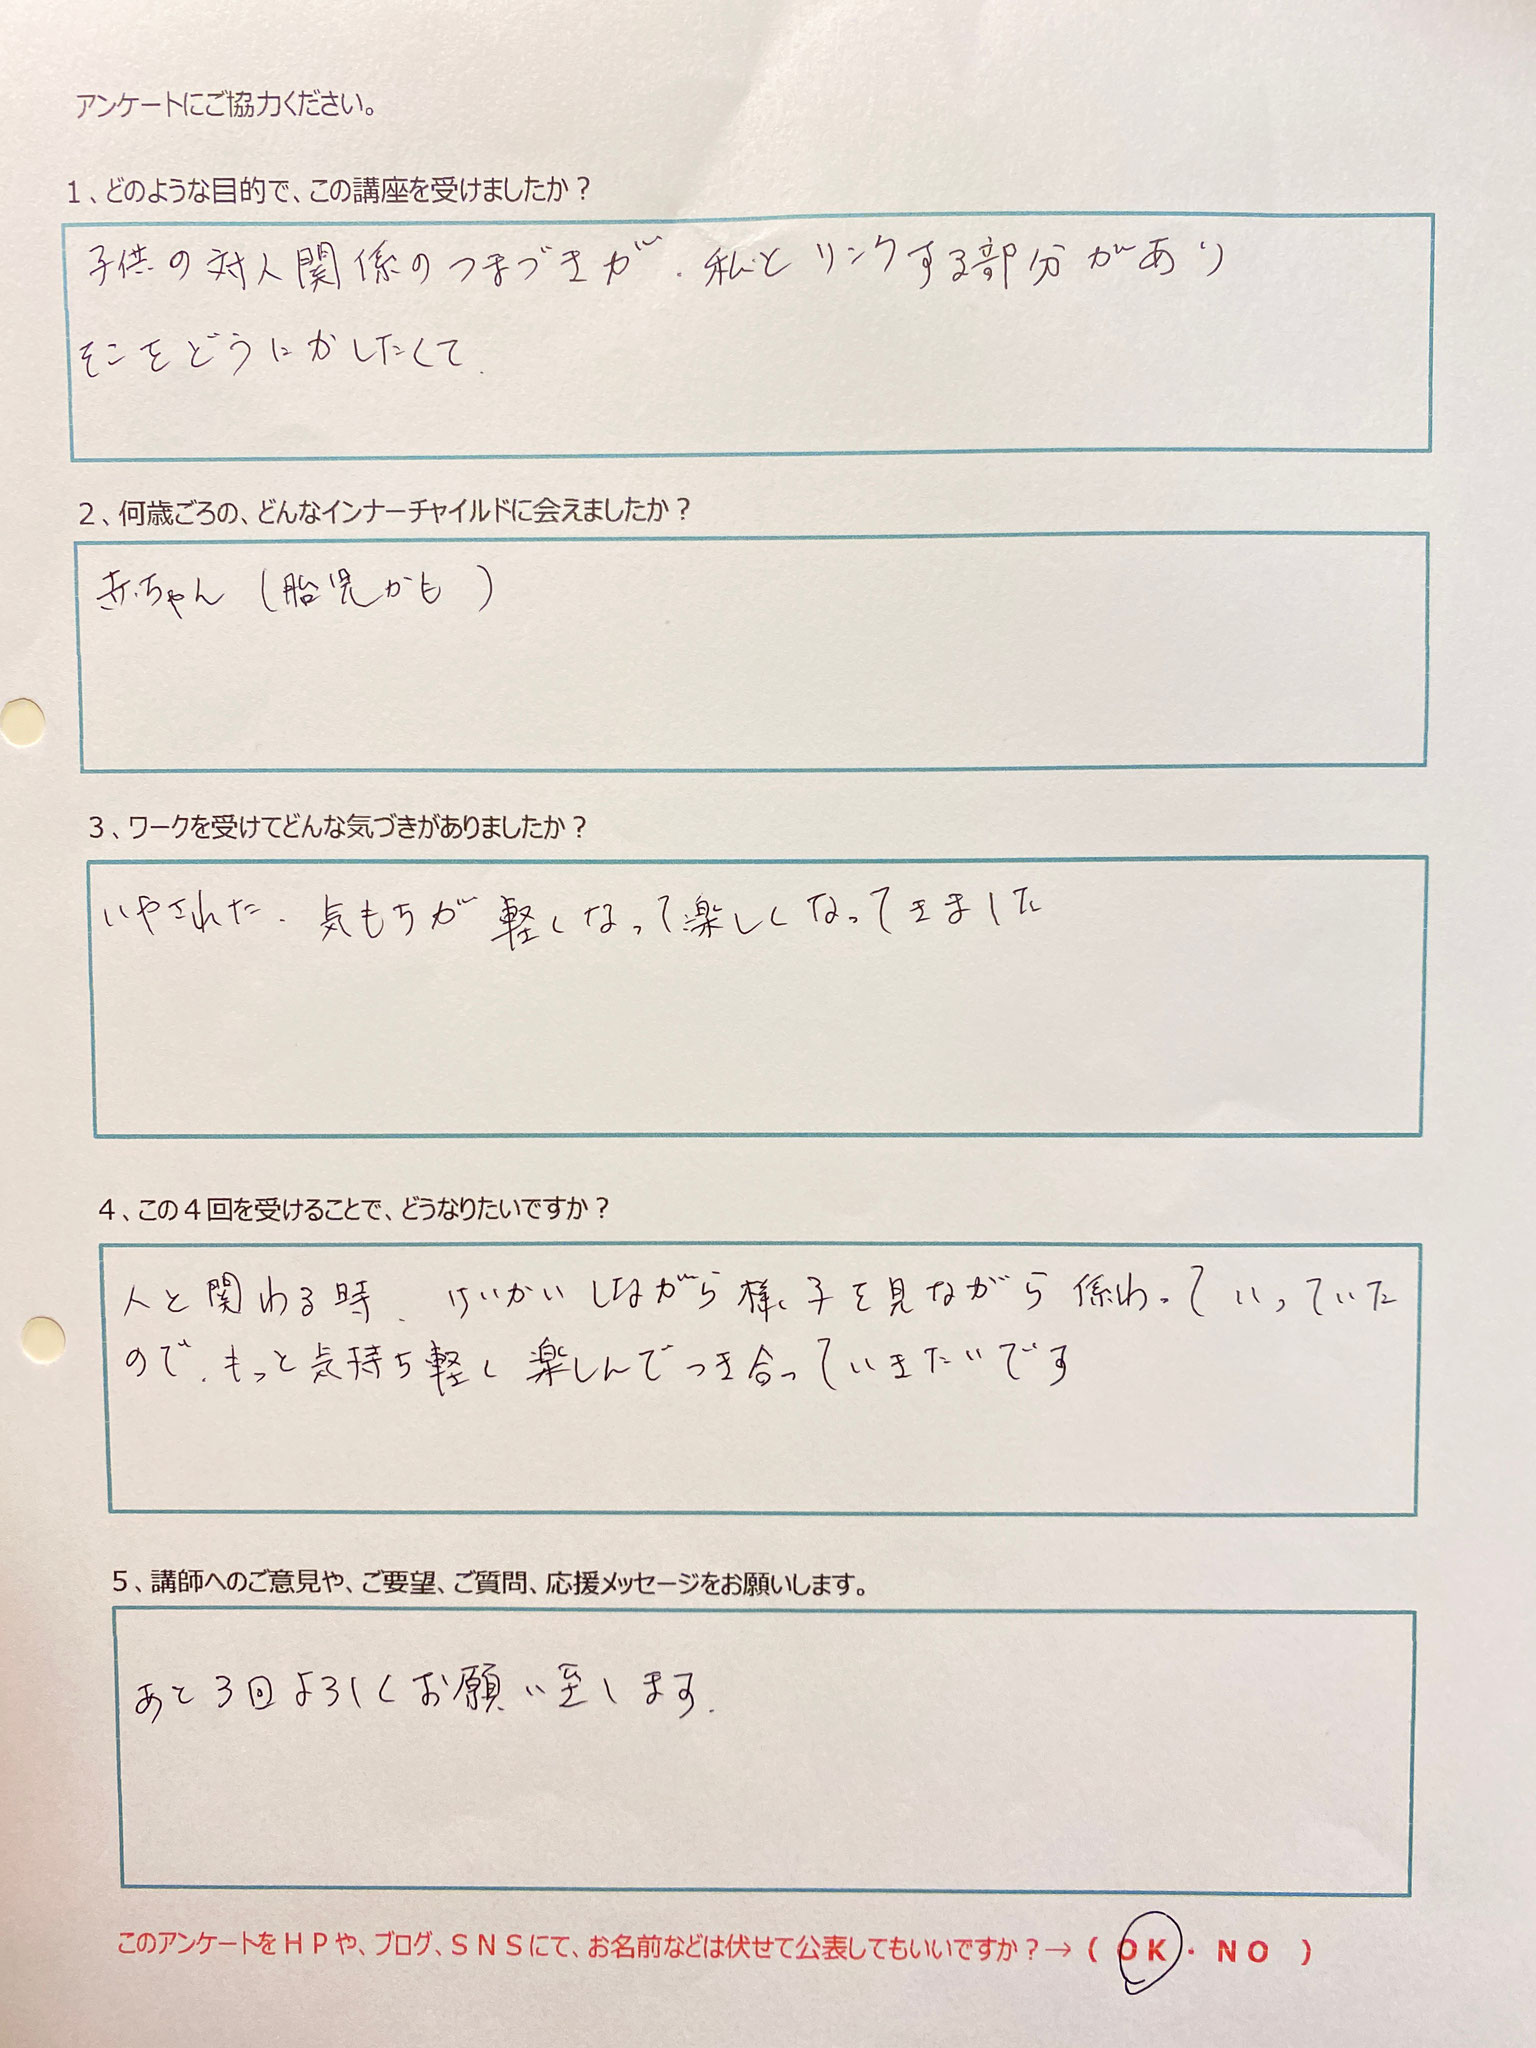 アンケートにご協力ください。
1、どのような目的で、この講座を受けましたか？
子供の対人関係のつまづきが、私とリンクする部分があり
そこをどうにかしたくて.
2、何歳ごろの、どんなインナーチャイルドに会えましたか？
赤ちゃん（胎児かも）
3、ワークを受けてどんな気づきがありましたか？
いやされた. 気もちが軽くなって楽しくなってきました
4、この4回を受けることで、どうなりたいですか？
人と関わる時、けいかいしながら様子を見ながら係わっていっていた
ので、もっと気持ち軽く楽しんでつき合っていきたいです
5、講師へのご意見や、ご要望、ご質問、応援メッセージをお願いします。
あと3回よろしくお願い至します.
このアンケートをＨＰや、ブログ、ＳＮＳにて、お名前などは伏せて公表してもいいですか？→（ ＯＫ・ＮＯ ）